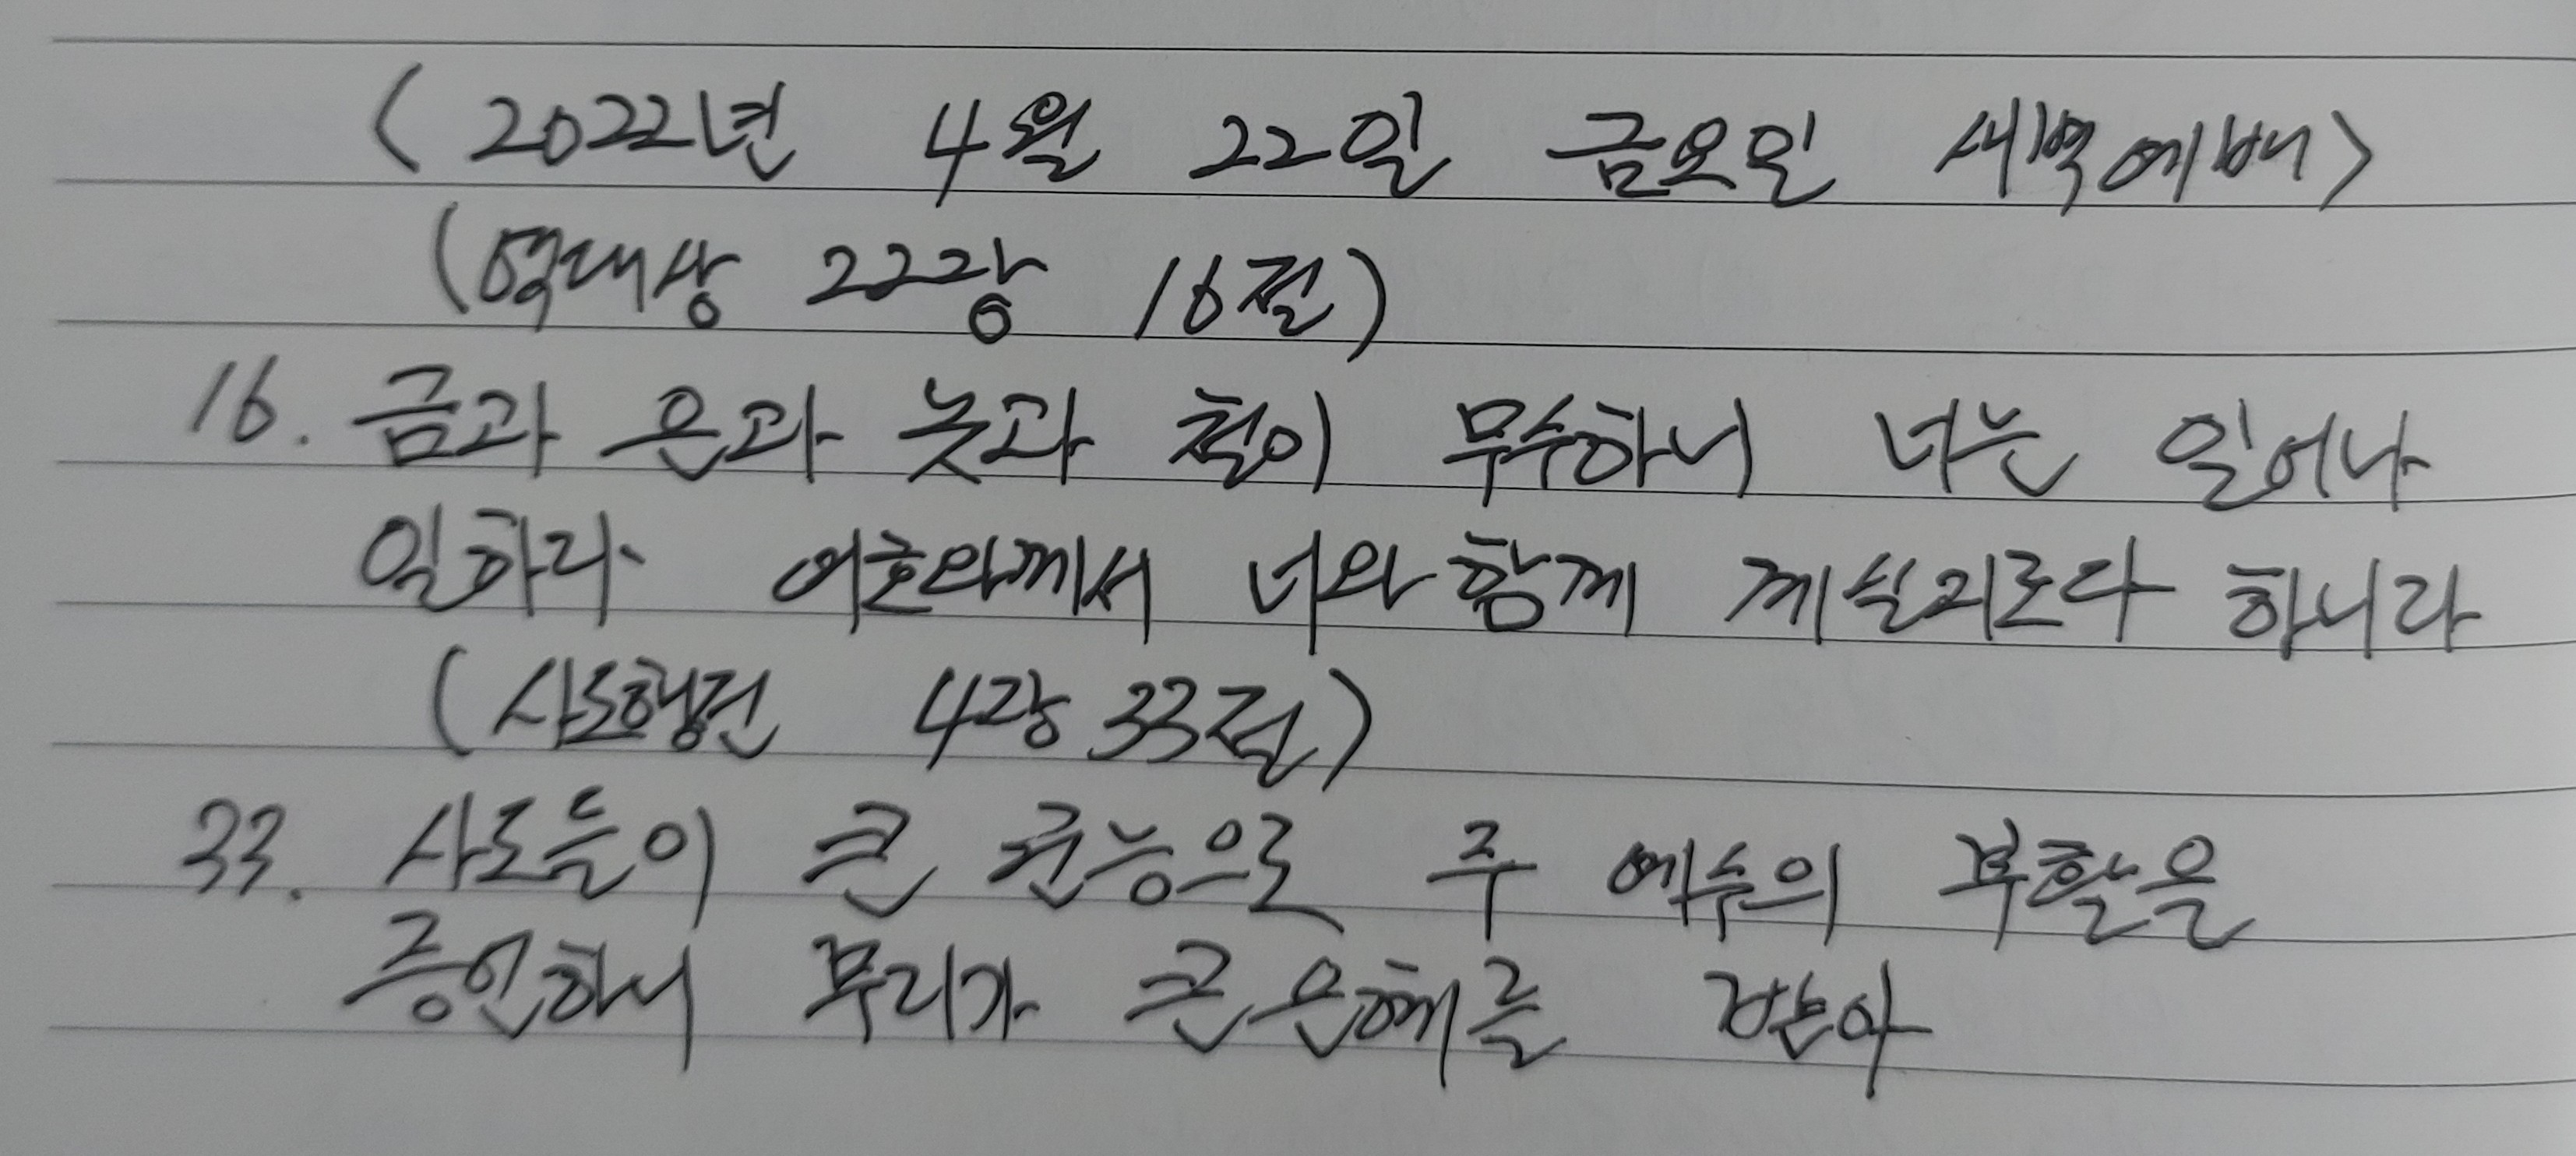 〈2022년 4월 22일 금요일 새벽예배〉
(역대상 22장 16절)
16. 금과 은과 놋과 철이 무수하니 너는 일어나
일하라 여호와께서 너와 함께 계실지로다 하니라
(사도행전 4장 33절)
33. 사도들이 큰 권능으로 주 예수의 부활을
증언하니 무리가 큰 은혜를 받아